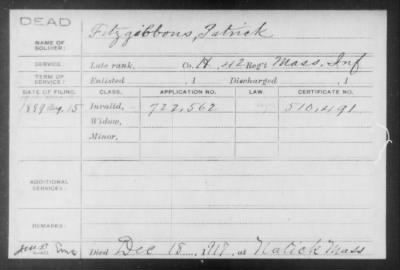 DEAD
NAME OF SOLDIER: Fitzgibbons, Patrick
SERVICE: Late rank, Co. H, 42 Reg't Mass, Inf
TERM OF SERVICE: Enlisted , 1 Discharged , 1
DATE OF FILING. CLASS. APPLICATION NO. LAW. CERTIFICATE NO.
1889 Aug. 15 Invalid, 722,562 510,491
Widow,
Minor,
ADDITIONAL SERVICES:
REMARKS:
Died Dec 18, 1917, at Natick Mass